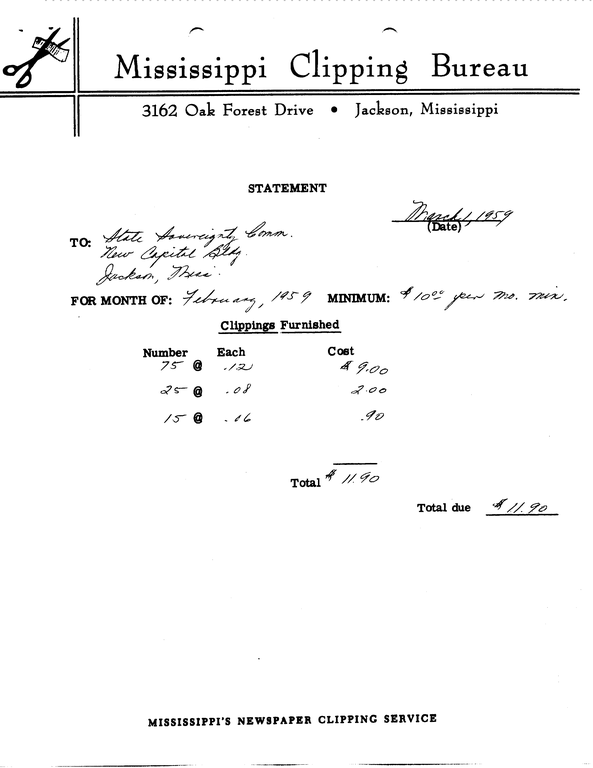 Mississippi Clipping Bureau
3162 Oak Forest Drive • Jackson, Mississippi
STATEMENT
March 1, 1959
(Date)
TO: State Sovereignty Comm.
New Capitol Bldg.
Jackson, Miss.
FOR MONTH OF: February, 1959 MINIMUM: $10.00 per mo. min.
Clippings Furnished
Number Each Cost
75 @ .12 $9.00
25 @ .08 2.00
15 @ .06 .90
Total $11.90
Total due $11.90
MISSISSIPPI'S NEWSPAPER CLIPPING SERVICE